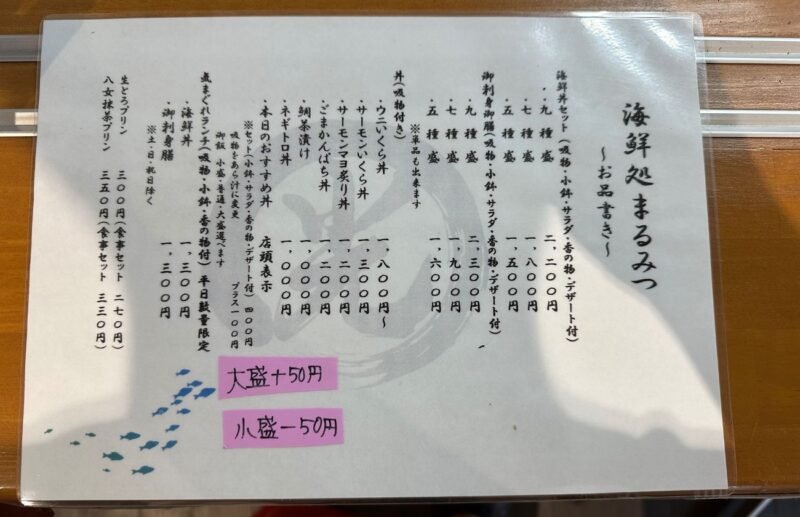 海鮮処まるみつ
～お品書き～
海鮮丼セット(吸物・小鉢・サラダ・香の物・デザート付)
・九種盛 二,二〇〇円
・七種盛 一,八〇〇円
・五種盛 一,五〇〇円
御刺身御膳(吸物・小鉢・サラダ・香の物・デザート付)
・九種盛 二,三〇〇円
・七種盛 一,九〇〇円
・五種盛 一,六〇〇円
※単品も出来ます
丼(吸物付き)
・ウニいくら丼 一,八〇〇円～
・サーモンいくら丼 一,三〇〇円
・サーモンマヨ炙り丼 一,二〇〇円
・ごまかんぱち丼 一,二〇〇円
・鯛茶漬け 一,〇〇〇円
・ネギトロ丼 一,〇〇〇円
・本日のおすすめ丼 店頭表示
※セット(小鉢・サラダ・香の物・デザート付) 四〇〇円
吸物をあら汁に変更 プラス一〇〇円
御飯 小盛・普通・大盛選べます
気まぐれランチ(吸物・小鉢・香の物付) 平日数量限定
・海鮮丼 一,三〇〇円
・御刺身膳 一,三〇〇円
※土・日・祝日除く
生とろプリン 三〇〇円(食事セット 二七〇円)
八女抹茶プリン 三五〇円(食事セット 三三〇円)
大盛+50円
小盛-50円